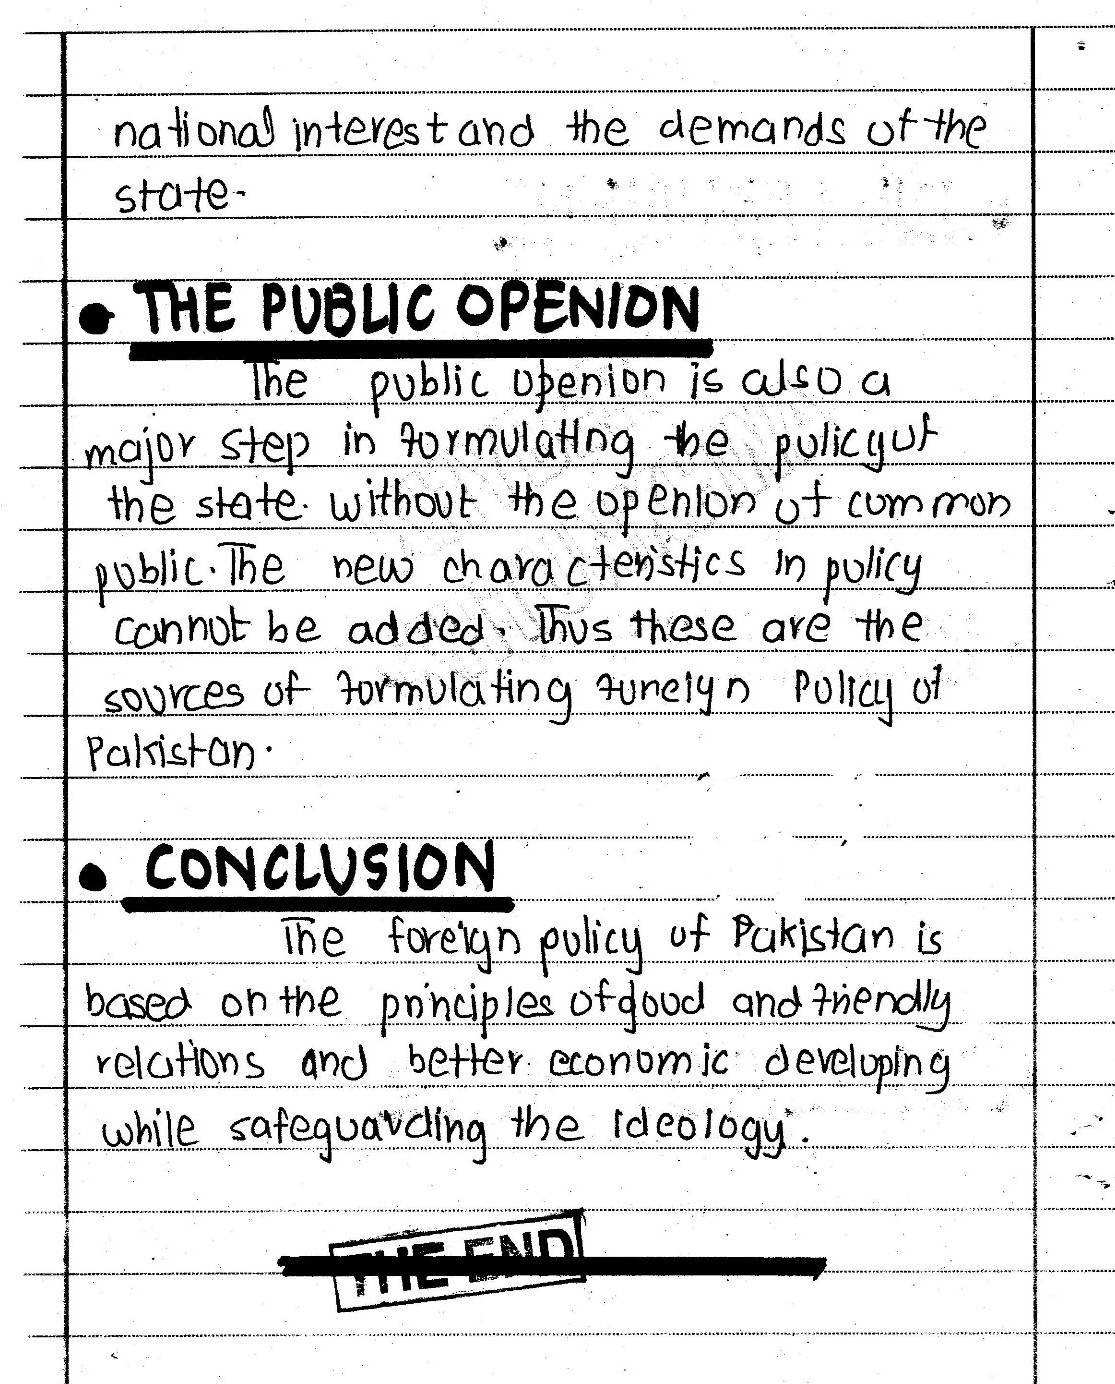 national interest and the demands of the
state.
• THE PUBLIC OPENION
The public openion is also a
major step in formulating the policy of
the state. without the openion of common
public. The new characteristics in policy
cannot be added. Thus these are the
sources of formulating foreign Policy of
Pakistan.
• CONCLUSION
The foreign policy of Pakistan is
based on the principles of good and friendly
relations and better economic developing
while safeguarding the ideology.
THE END